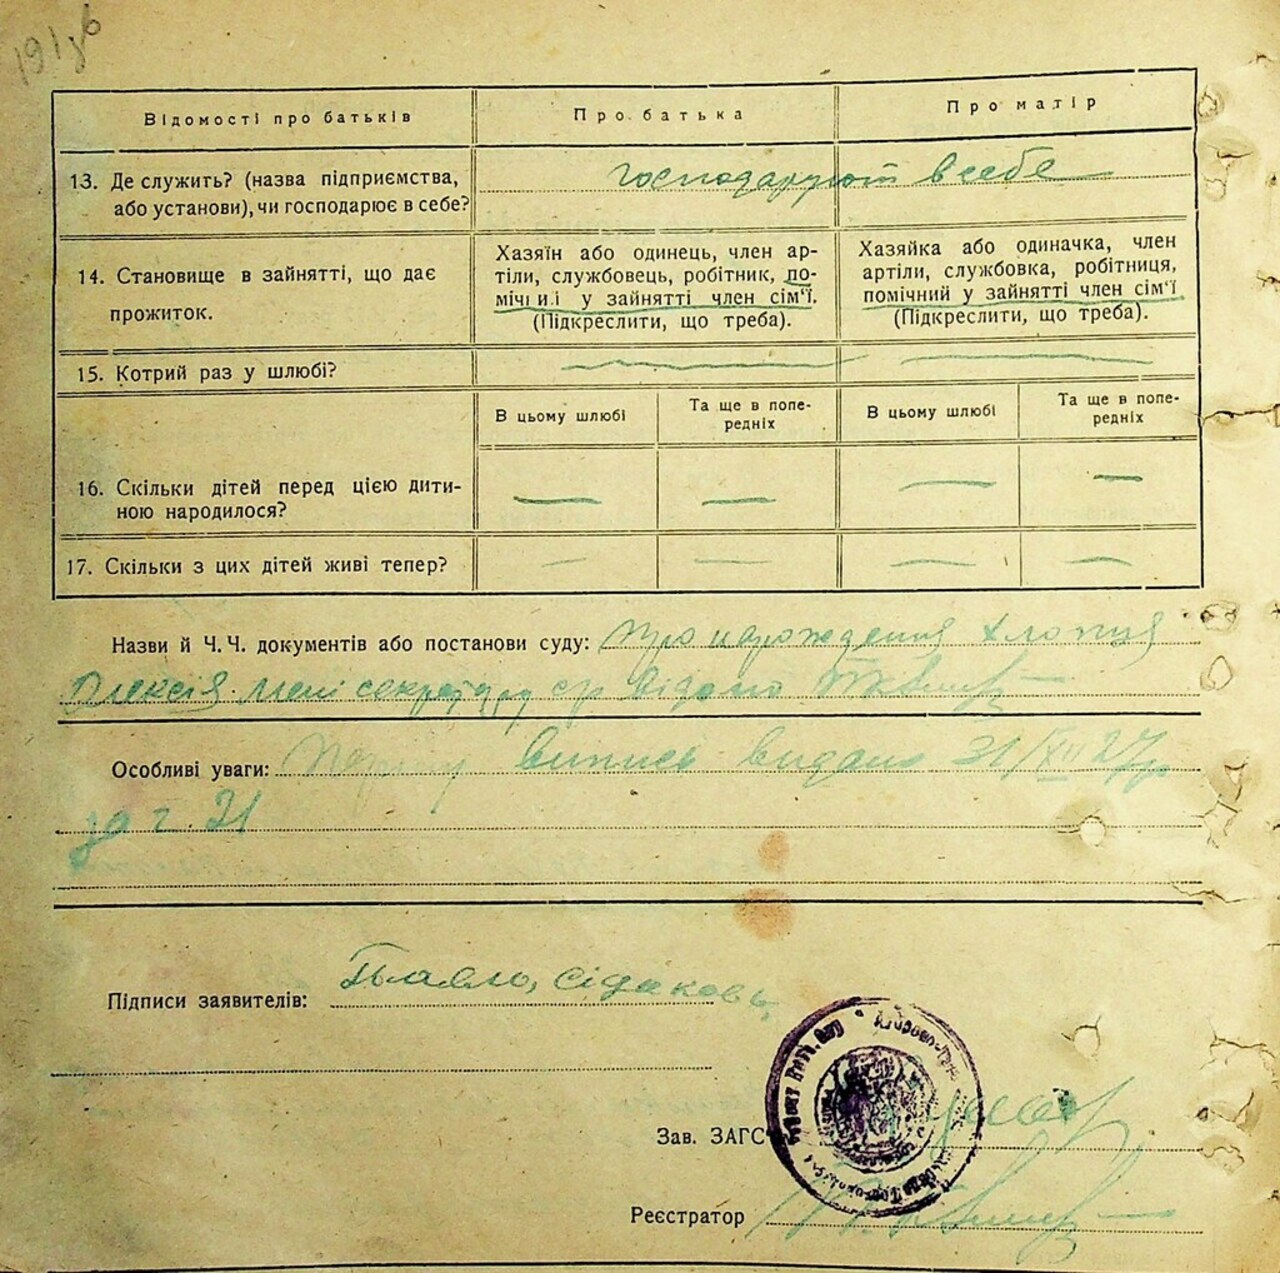 Відомості про батьків
Про батька
Про матір
13. Де служить? (назва підприємства,
або установи), чи господарює в себе?
господарюют в себе
14. Становище в зайнятті, що дає
прожиток.
Хазяїн або одинець, член ар-
тіли, службовець, робітник, по-
мічний у зайнятті член сім'ї.
(Підкреслити, що треба).
Хазяйка або одиначка, член
артіли, службовка, робітниця,
помічний у зайнятті член сім'ї
(Підкреслити, що треба).
15. Котрий раз у шлюбі?
В цьому шлюбі
Та ще в попе-
редніх
В цьому шлюбі
Та ще в попе-
редніх
16. Скільки дітей перед цією дити-
ною народилося?
17. Скільки з цих дітей живі тепер?
Назви й Ч. Ч. документів або постанови суду: Про народження хлопця
Олексія мені секретарю с/р відомо
Особливі уваги: випись видано 31/XII 27р
за ч. 21
Підписи заявителів:
Зав. ЗАГС
Реєстратор